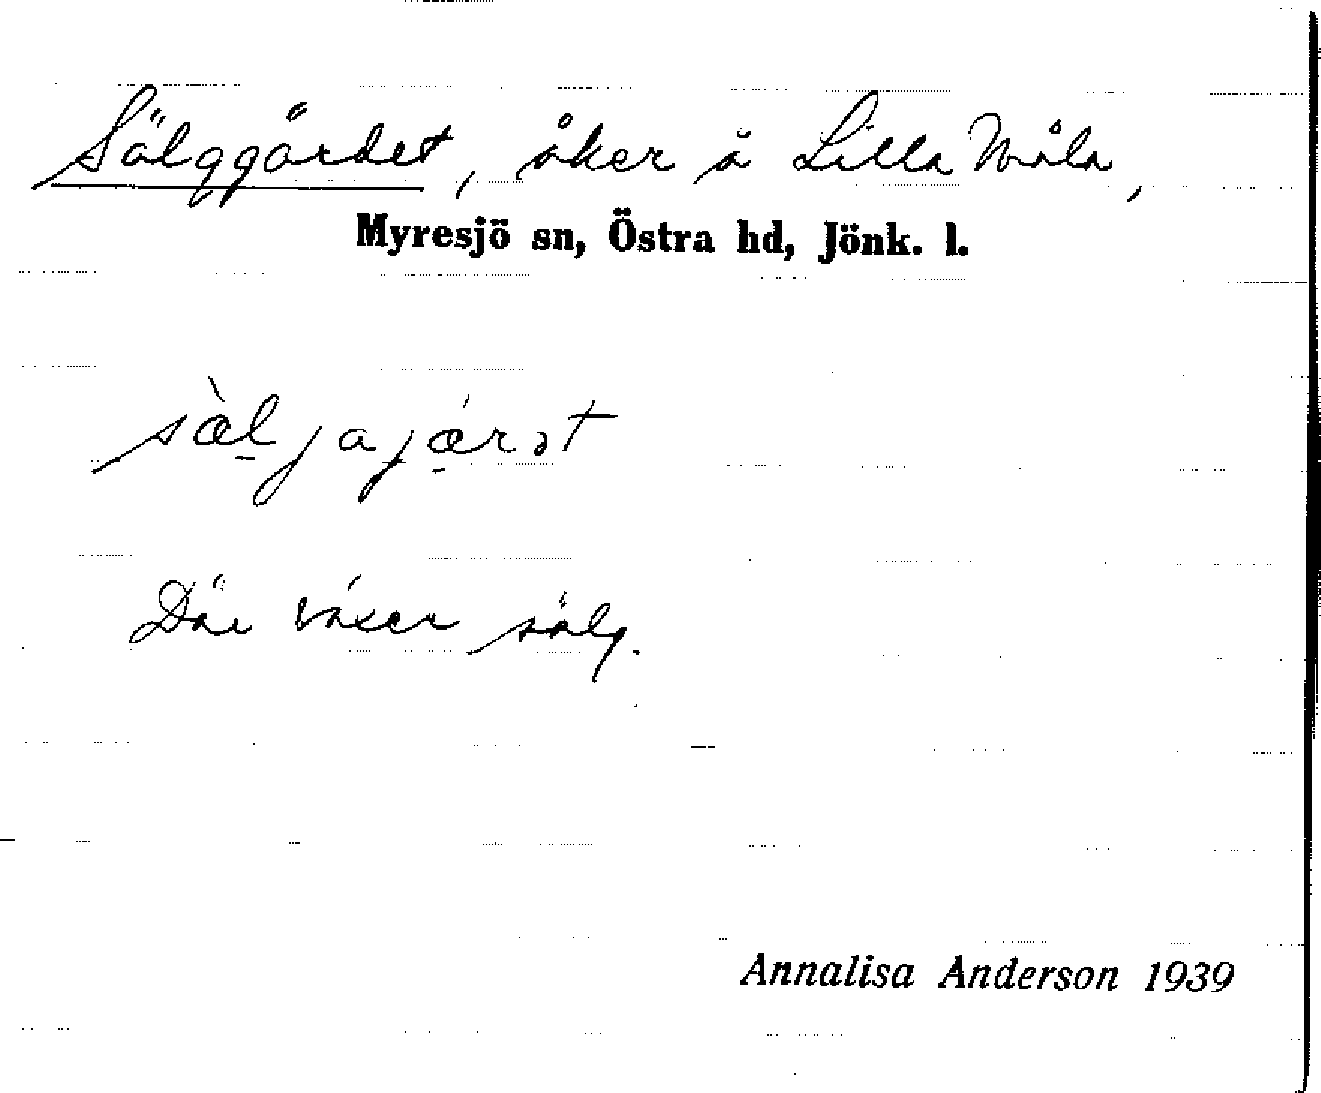 Sälggärdet, åker å Lilla Måla,
Myresjö sn, Östra hd, Jönk. l.
sæ̀ljajæ̀rət
Där växer sälg.
Annalisa Anderson 1939